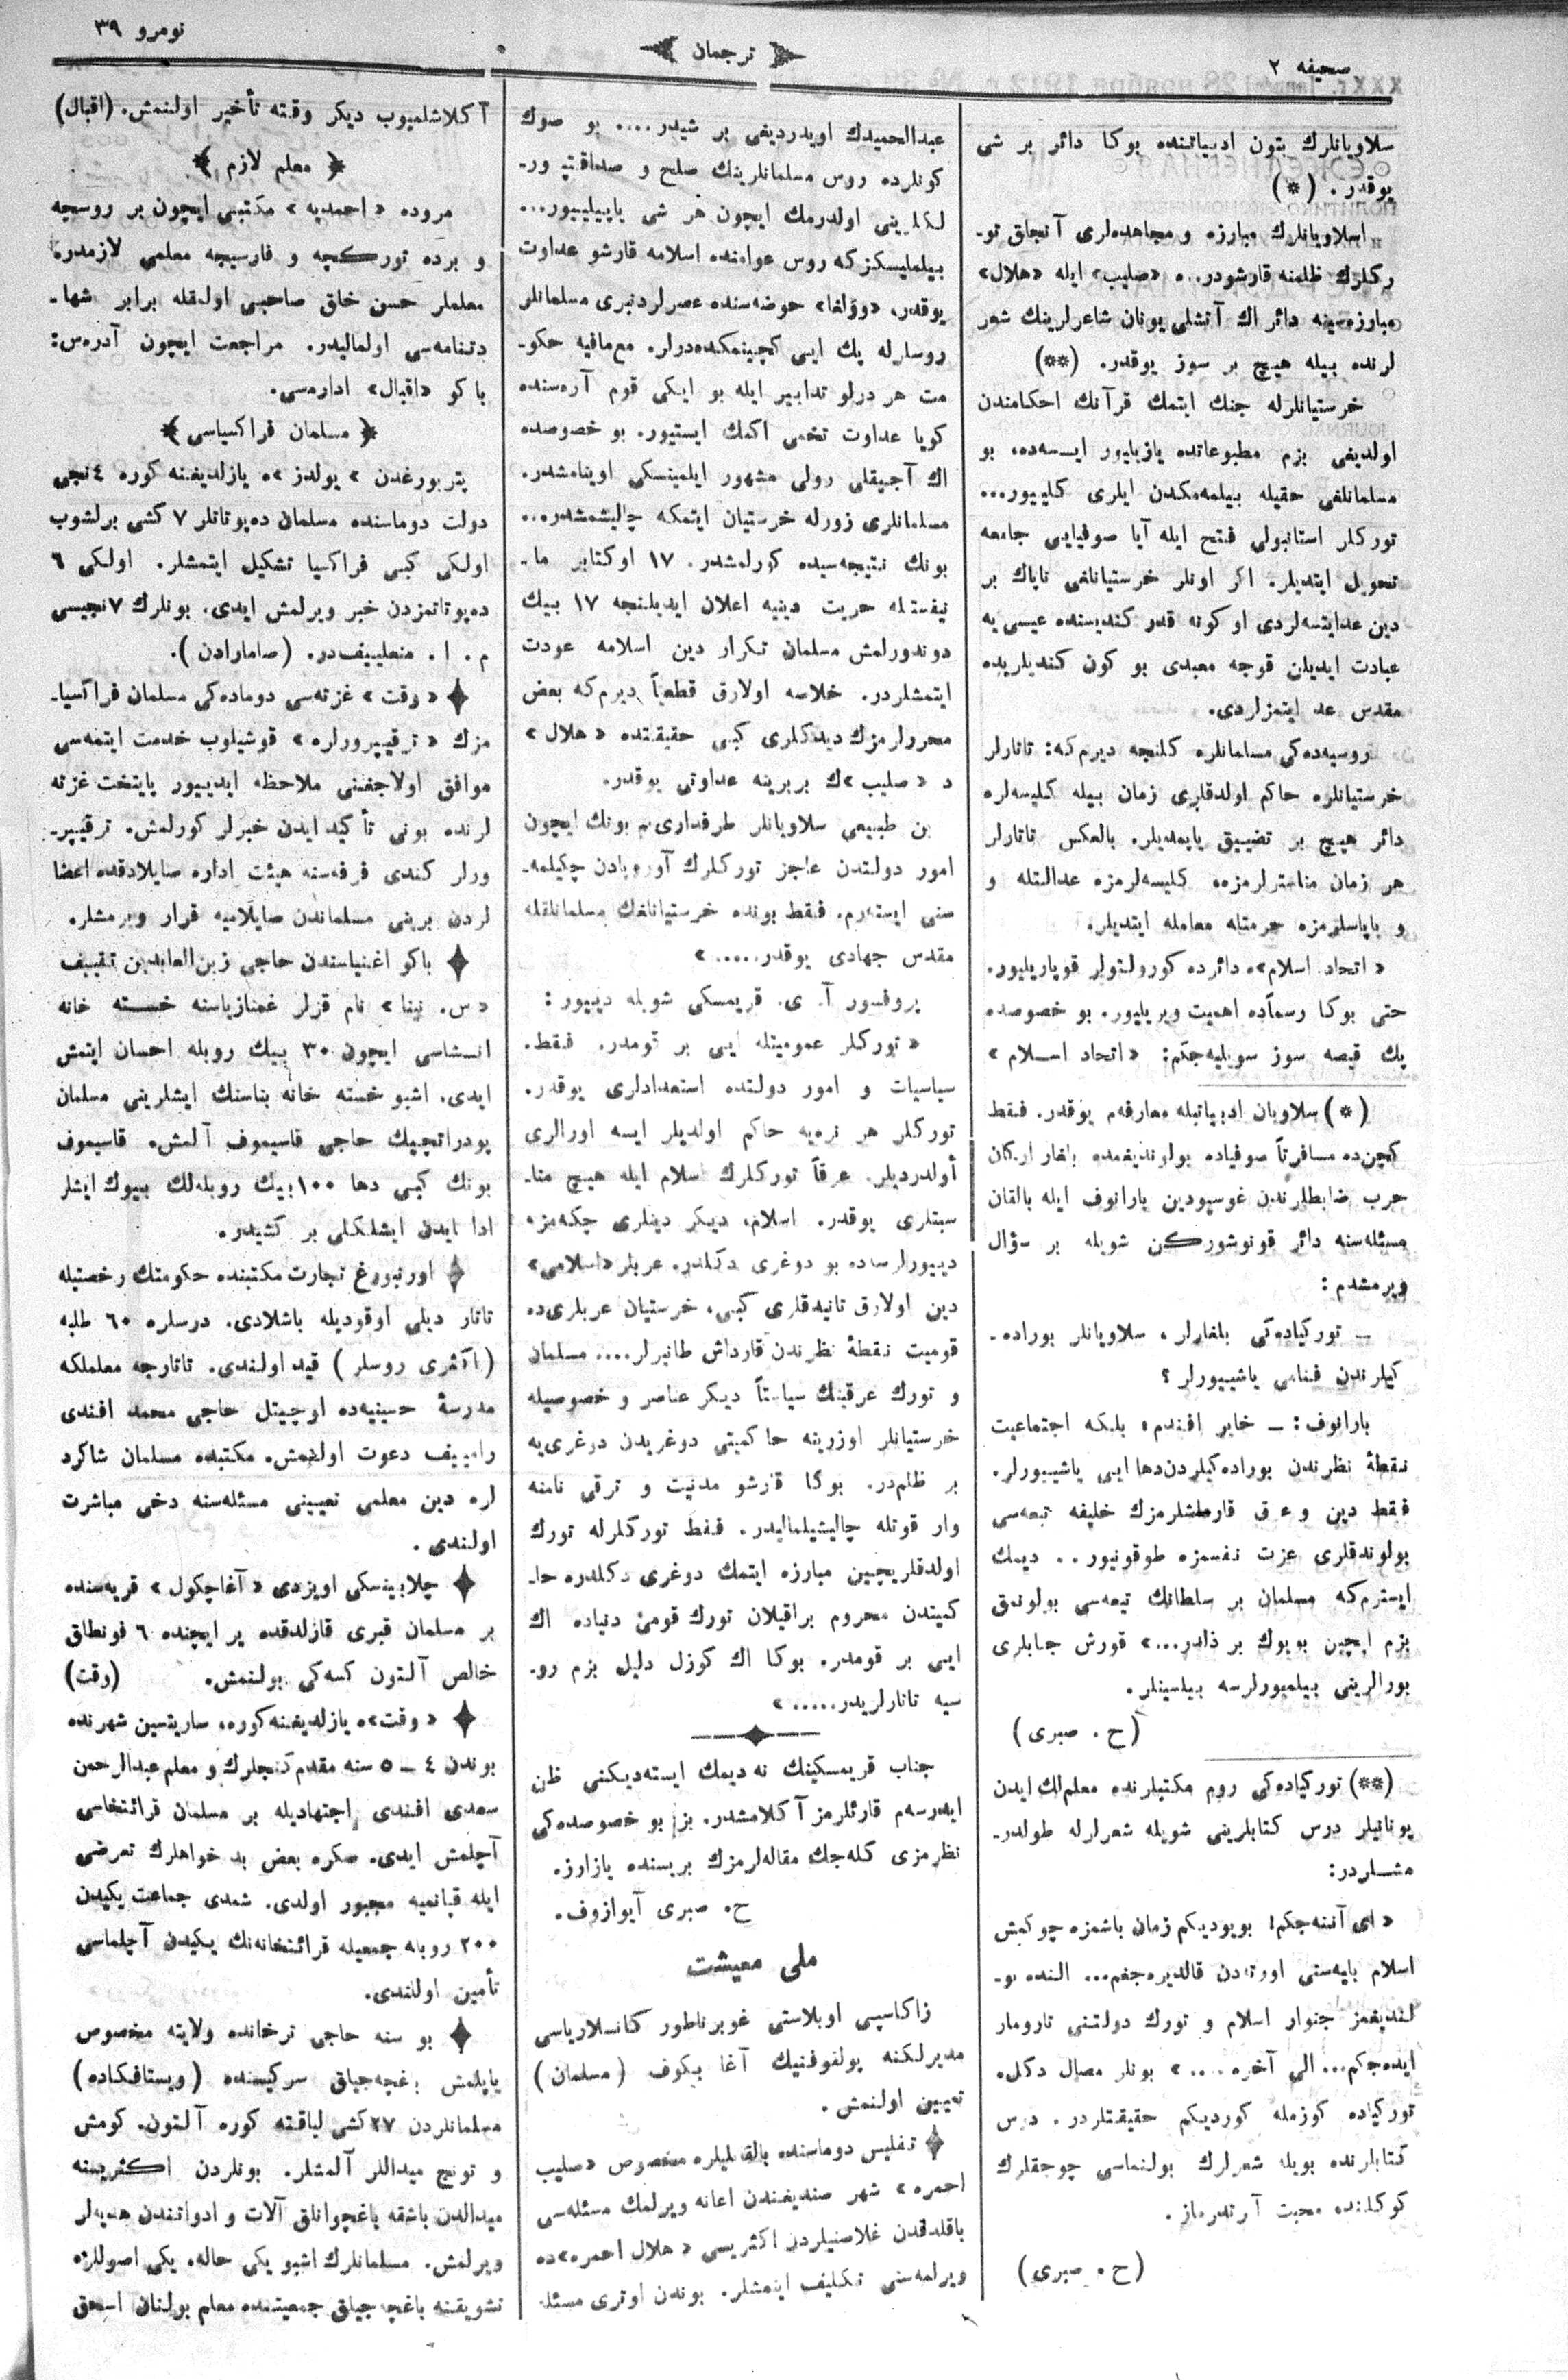 صحيفه ٢
ترجمان
نومرو ٣٩
سلاويانلرك بتون ادبياتنده بوكا دائر بر شى
يوقدر. (*)
اسلاويانلرك مبارزه و مجاهده‌لرى آنجاق تو-
ركلرك ظلمنه قارشودر.. «صليب» ايله «هلال»
مبارزه‌سينه دائر اك آتشلى يونان شاعرلرينك شعر
لرنده بيله هيچ بر سوز يوقدر. (**)
خرستيانلرله جنك ايتمك قرآنك احكامندن
اولديغى بزم مطبوعاتده يازيليور ايسه‌ده، بو
مسلمانلغى حقيله بيلمه‌مكدن ايلرى كلييور...
توركلر استانبولى فتح ايله آيا صوفيايى جامعه
تحويل ايتديلر. اكر اونلر خرستيانلغى ناپاك بر
دين عدايتسه‌لردى او كونه قدر كنديسنده عيسى يه
عبادت ايديلن قوجه معبدى بو كون كنديلريده
مقدس عد ايتمزاردى.
روسيه‌ده‌كى مسلمانلره كلنجه ديرم كه: تاتارلر
خرستيانلره حاكم اولدقلرى زمان بيله كليسه‌لره
دائر هيچ بر تضييق ياپمديلر. بالعكس تاتارلر
هر زمان مناسترلرمزه، كليسه‌لرمزه عدالتله و
و باپاسلرمزه حرمتله معامله ايتديلر.
«اتحاد اسلام»ه دائرده كورولتولر قوپاريليور.
حتى بوكا رسماًده اهميت ويريليور. بو خصوصده
پك قيصه سوز سويليه‌جكم: «اتحاد اسلام»
(*) سلاويان ادبياتيله معارفه‌م يوقدر. فقط
كچن‌ده مسافرتاً صوفياده بولونديغمده بلغار اركان
حرب ضابطلرندن غوسپودين بارانوف ايله بالقان
مسئله‌سنه دائر قونوشوركن شويله بر سؤال
ويرمشدم:
ــ توركياده‌كى بلغارلر، سلاويانلر بوراده-
كيلرندن فنامى ياشييورلر؟
بارانوف: ــ خاير افندم؛ بلكه اجتماعيت
نقطۀ نظرندن بوراده‌كيلردن‌دها ايى ياشييورلر.
فقط دين و عرق قارداشلرمزك خليفه تبعه‌سى
بولوندقلرى عزت نفسمزه طوقونيور.. ديمك
ايسترم كه مسلمان بر سلطانك تبعه‌سى بولونمق
بزم ايچين بويوك بر ذلدر...» قورش جنابلرى
بورالرينى بيلميورلرسه بيلسينلر.
(ح. صبرى)
(**) توركياده‌كى روم مكتبلرنده معلملك ايدن
يونانيلر درس كتابلرينى شويله شعرلرله طولدر-
مشلردر:
«اى آننه‌جكم! بويوديكم زمان باشمزه چوكمش
اسلام بايه‌سنى اورته‌دن قالديره‌جغم... النده بو-
لنديغمز جنوار اسلام و تورك دولتنى تارومار
ايده‌جكم... الى آخره....» بونلر مصال دكل.
توركياده كوزمله كورديكم حقيقتلردر. درس
كتابلرنده بويله شعرلرك بولنماسى چوجقلرك
كوكلنده محبت آرتدرماز.
(ح. صبرى)
عبدالحميدك اويدرديغى بر شيدر.... بو صوك
كونلرده روس مسلمانلرينك صلح و صداقتپ ور-
لكلرينى اولدرمك ايچون هر شى ياپيلييور...
بيلمليسكزكه روس عوامنده اسلامه قارشو عداوت
يوقدر، «وولغا» حوضه‌سنده عصرلردنبرى مسلمانلر
روسلرله پك ايى كچينمكده‌درلر. مع‌مافيه حكو-
مت هر درلو تدابير ايله بو ايكى قوم آره‌سنده
كويا عداوت تخمى اكمك ايستيور. بو خصوصده
اك آجيقلى رولى مشهور ايلمينسكى اوينامشدر.
مسلمانلرى زورله خرستيان ايتمكه چاليشمشدر...
بونك نتيجه‌سيده كورلمشدر. ١٧ اوكتابر ما-
نيفستله حريت دينيه اعلان ايديلنجه ١٧ بيك
دوندورلمش مسلمان تكرار دين اسلامه عودت
ايتمشلردر. خلاصه اولارق قطعياً ديرم كه بعض
محررلرمزك ديدكلرى كبى حقيقتده «هلال»
د «صليب»ك بربرينه عداوتى يوقدر.
بن طبيعى سلاويانلر طرفدارى‌م بونك ايچون
امور دولتدن عاجز توركلرك آوروپادن چكيلمه-
سنى ايسته‌رم. فقط بونده خرستيانلغك مسلمانلقله
مقدس جهادى يوقدر.....»
پروفسور آ. ى. قريمسكى شويله دييور:
«توركلر عموميتله ايى بر قومدر. فقط.
سياسيات و امور دولتده استعدادلرى يوقدر.
توركلر هر نره‌يه حاكم اولديلر ايسه اورالرى
أولدرديلر. عرقاً توركلرك اسلام ايله هيچ منا-
سبتلرى يوقدر. اسلام، ديكر دينلرى چكه‌مز،
دييورلرسه‌ده بو دوغرى دكلدر. عربلر «اسلامى»
دين اولارق تانيدقلرى كبى، خرستيان عربلرى‌ده
قوميت نقطۀ نظرندن قارداش طانيرلر.... مسلمان
و تورك عرقينك سياستاً ديكر عناصر و خصوصيله
خرستيانلر اوزرينه حاكميتى دوغريدن دوغرى‌يه
بر ظلمدر. بوكا قارشو مدنيت و ترقى نامنه
وار قوتله چاليشيلماليدر. فقط توركلرله تورك
اولدقلريچين مبارزه ايتمك دوغرى دكلدر. حا-
كميتدن محروم براقيلان تورك قومى دنياده اك
ايى بر قومدر. بوكا اك كوزل دليل بزم رو-
سيه تاتارلريدر.....»
جناب قريمسكينك نه ديمك ايسته‌ديكنى ظن
ايدرسه‌م قارئلرمز آكلامشدر. بز بو خصوصده‌كى
نظرمزى كله‌جك مقاله‌لرمزك بريسنده يازارز.
ح. صبرى آيوازوف.
ملى معيشت
زاكاسپى اوبلاستى غوبرناطور كانسلارياسى
مديرلكنه پولقوفنيك آغا بكوف (مسلمان)
تعيين اولنمش.
تفليس دوماسنده بالقانليلره مخصوص «صليب
احمره» شهر صنديغندن اعانه ويرلمك مسئله‌سى
باقلدقدن غلاصنيلردن اكثريسى «هلال احمره»ده
ويرلمه‌سنى تكليف ايتمشلر. بوندن اوترى مسئله
آكلاشلميوب ديكر وقته تأخير اولنمش. (اقبال)
معلم لازم
مروده «احمديه» مكتبى ايچون بر روسچه
و برده توركچه و فارسيجه معلمى لازمدر.
معلملر حسن خلق صاحبى اولمقله برابر شها-
دتنامه‌سى اولماليدر. مراجعت ايچون آدره‌س:
باكو «اقبال» اداره‌سى.
مسلمان فراكسياسى
پتربورغدن «يولدز»ه يازلديغنه كوره ٤نجى
دولت دوماسنده مسلمان ده‌پوتاتلر ٧ كشى برلشوب
اولكى كبى فراكسيا تشكيل ايتمشلر. اولكى ٦
ده‌پوتاتمزدن خبر ويرلمش ايدى. بونلرك ٧نجيسى
م. ا. منعلييف‌در. (صامارادن).
«وقت» غزته‌سى دوماده‌كى مسلمان فراكسيا-
مزك «ترقيپرورلره» قوشيلوب خدمت ايتمه‌سى
موافق اولاجغنى ملاحظه ايدييور پايتخت غزته
لرنده بونى تأكيد ايدن خبرلر كورلمش. ترقيپر-
ورلر كندى فرقه‌سنه هيئت اداره صايلادقده اعضا
لردن برينى مسلماندن صايلاميه قرار ويرمشلر.
باكو اغنياسندن حاجى زين‌العابدين تقييف
«س. نينا» نام قزلر غمنازياسنه خسته خانه
انشاسى ايچون ٣٠ بيك روبله احسان ايتمش
ايدى. اشبو خسته خانه بناسنك ايشلرينى مسلمان
پودراتچيك حاجى قاسيموف آلمش. قاسيموف
بونك كبى دها ١٠٠بيك روبله‌لك بيوك ايشلر
ادا ايدن ايشلكلى بر كشيدر.
اورنبورغ تجارت مكتبنده حكومتك رخصتيله
تاتار ديلى اوقوديله باشلادى. درسلره ٦٠ طلبه
(اكثرى روسلر) قيد اولندى. تاتارجه معلملكه
مدرسۀ حسينيه‌ده اوچيتل حاجى محمد افندى
رامييف دعوت اولنمش. مكتبده مسلمان شاكرد
لره دين معلمى تعيينى مسئله‌سنه دخى مباشرت
اولندى.
چلابينسكى اويزدى «آغاچكول» قريه‌سنده
بر مسلمان قبرى قازلدقده ير ايچنده ٦ فونطلق
خالص آلتون كسه‌كى بولنمش. (وقت)
«وقت»ه يازلديغنه‌كوره، ساريتسين شهرنده
بوندن ٤ــ٥ سنه مقدم كنجلرك و معلم عبدالرحمن
سعدى افندى اجتهاديله بر مسلمان قرائتخانه‌سى
آچلمش ايدى. صكره بعض بد خواهلرك تعرضى
ايله قپانميه مجبور اولدى. شمدى جماعت يكيدن
٢٠٠ روبله جمعيله قرائتخانه‌نك يكيدن آچلماسى
تأمين اولندى.
بو سنه حاجى ترخانده ولايته مخصوص
ياپلمش باغچه‌جيلق سركيسنده (ويستافكاده)
مسلمانلردن ٢٧كشى لياقته كوره آلتون. كومش
و تونج ميداللر آلمشلر. بونلردن اكثريسنه
ميدالدن باشقه باغچوانلق آلات و ادواتندن هديه‌لر
ويرلمش. مسلمانلرك اشبو يكى حاله، يكى اصوللره
تشويقنه باغچه جيلق جمعيتنده معلم بولنان اسحق